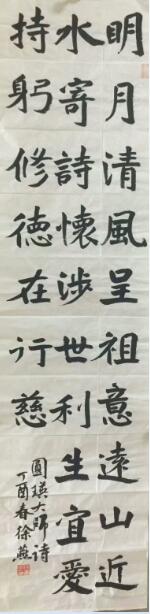 明月清風呈祖意遠山近
水寄詩懷涉世利生宜愛
持躬修德在行慈
圓瑛大師詩
丁酉春徐燕